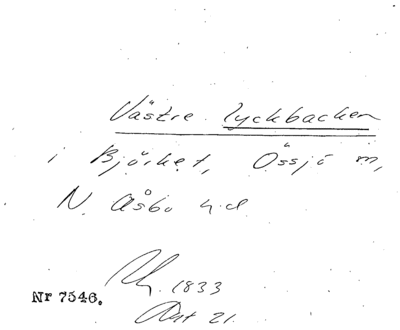 Västre lyckbacken
i Björket, Össjö m,
N. Åsbo hd
1833
Nr 7546.
Akt 21.